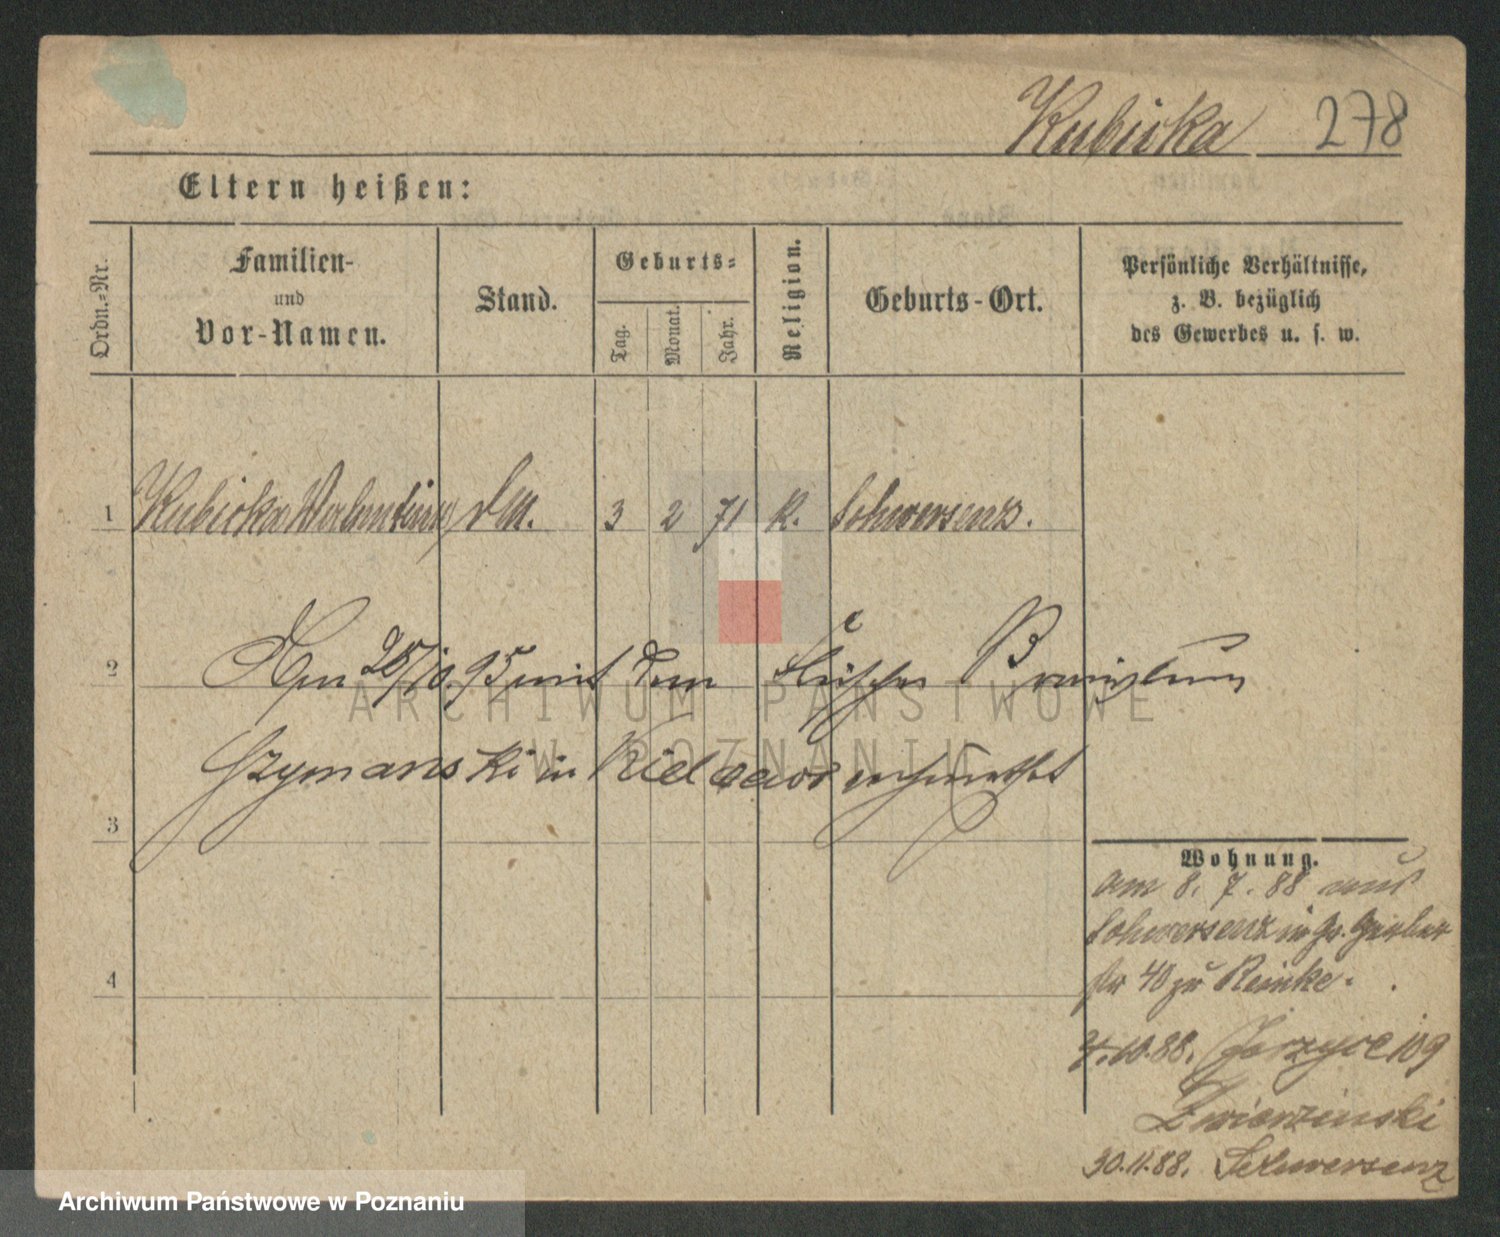 Kubicka 278
Eltern heißen:
Ordn.-Nr.
Familien-
und
Vor-Namen.
Stand.
Geburts-
Tag.
Monat.
Jahr.
Religion.
Geburts-Ort.
Persönliche Verhältnisse,
z. B. bezüglich
des Gewerbes u. s. w.
1 Kubicka Valentina 3 2 71 k. Schwersenz.
2 Am 25/10. 95 mit dem
3 Szymanski in verheirathet
4
Wohnung.
am 8. 7. 88 aus
Schwersenz in Gr. Gerber
str 40 zu Reinke.
10.88. Jerzyce 109
Zwierzinski
30.11.88. Schwersenz
ARCHIWUM PAŃSTWOWE
W POZNANIU
Archiwum Państwowe w Poznaniu